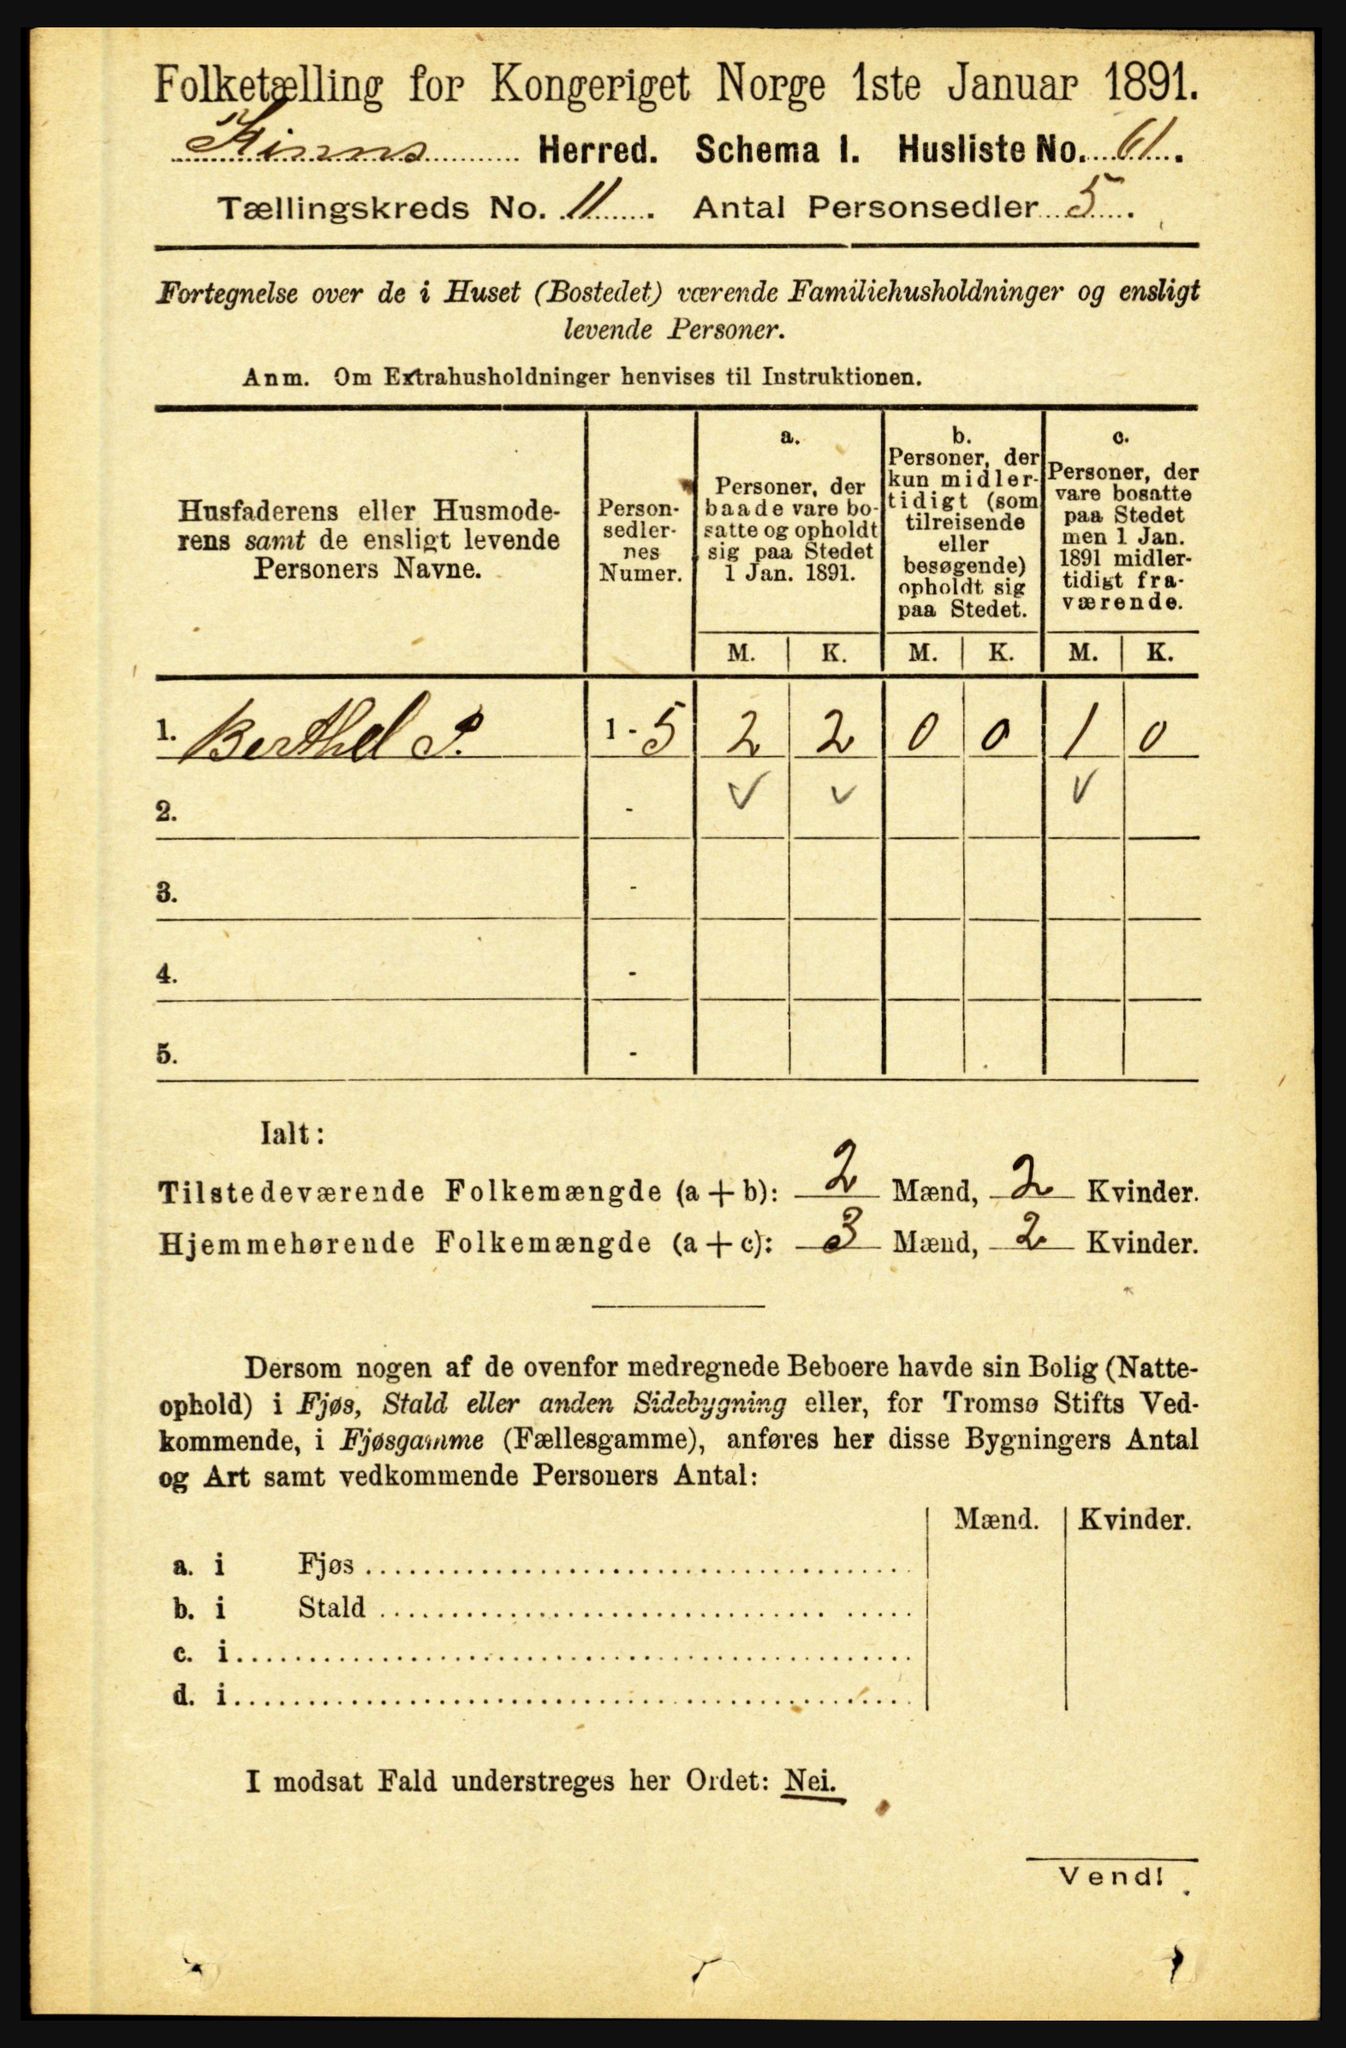 Folketælling for Kongeriget Norge 1ste Januar 1891.
Kinns Herred. Schema I. Husliste No. 61.
Tællingskreds No. 11. Antal Personsedler 5.
Fortegnelse over de i Huset (Bostedet) værende Familiehusholdninger og ensligt
levende Personer.
Anm. Om Extrahusholdninger henvises til Instruktionen.
Husfaderens eller Husmode-
rens samt de ensligt levende
Personers Navne.
Person-
sedler-
nes
Numer.
a.
Personer, der
baade vare bo-
satte og opholdt
sig paa Stedet
1 Jan. 1891.
b.
Personer, der
kun midler-
tidigt (som
tilreisende
eller
besøgende)
opholdt sig
paa Stedet.
c.
Personer, der
vare bosatte
paa Stedet
men 1 Jan.
1891 midler-
tidigt fra-
værende.
M. K. M. K. M. K.
1. Berthel P. 1 - 5 2 2 0 0 1 0
2. - ✓ ✓ ✓
3. -
4. -
5. -
Ialt:
Tilstedeværende Folkemængde (a + b): 2 Mænd, 2 Kvinder.
Hjemmehørende Folkemængde (a + c): 3 Mænd, 2 Kvinder.
Dersom nogen af de ovenfor medregnede Beboere havde sin Bolig (Natte-
ophold) i Fjøs, Stald eller anden Sidebygning eller, for Tromsø Stifts Ved-
kommende, i Fjøsgamme (Fællesgamme), anføres her disse Bygningers Antal
og Art samt vedkommende Personers Antal:
Mænd. Kvinder.
a. i Fjøs
b. i Stald
c. i
d. i
I modsat Fald understreges her Ordet: Nei.
Vend!